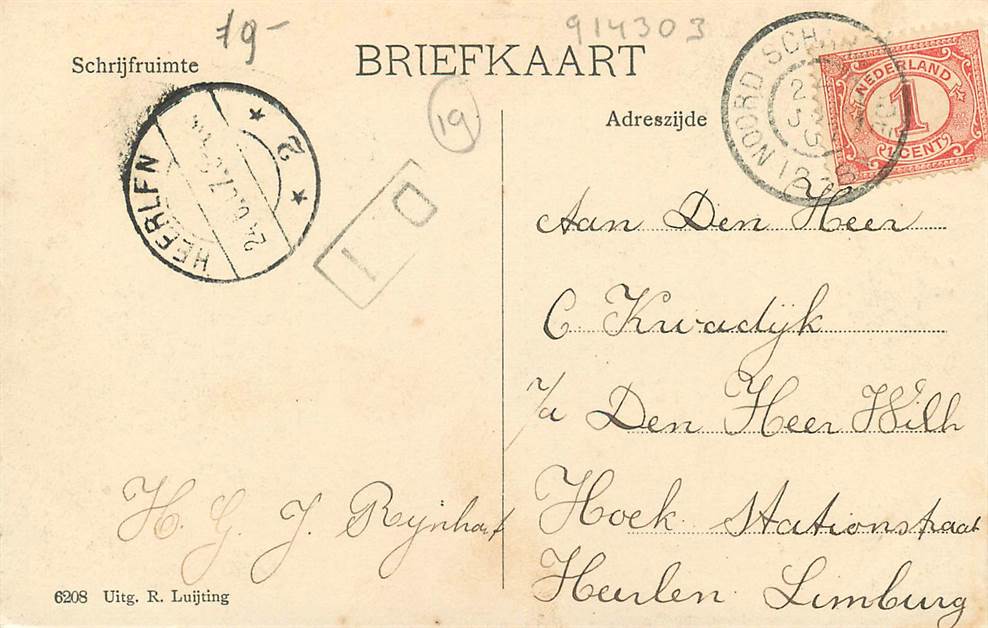 19-
914303
Schrijfruimte
BRIEFKAART
Adreszijde
19
NEDERLAND
1
1 CENT
NOORD
HEERLEN
2
1 0
Aan Den Heer
C Kwadijk
p/a Den Heer Wilh
Hoek Stationstraat
Heerlen Limburg
H. G. J. Rijnhout
6208 Uitg. R. Luijting